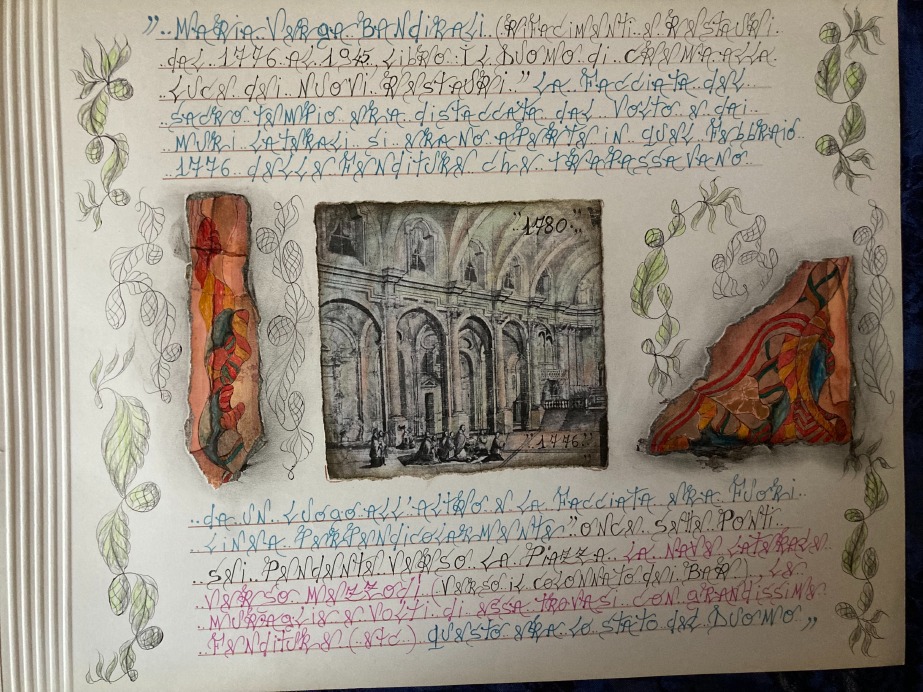 "..MARIA VERGA BANDIRALI (RIFACIMENTI E RESTAURI
dAL 1776 AL 1945 LIBRO IL DUOMO di CREMA ALLA
LUCE dei NUOVI RESTAURI." LA FACCIATA dEL
SACRO TEMPIO ERA distACCATA dAL VOLTO E dAi
MURI LATERALI Si ERANO APERTE iN QUEL FEBBRAIO
1776 dELLE FENDITURE CHE TRAPASSAVANO
"1780"
"1776"
dA UN LUOGO ALL'ALTRO E LA FACCIATA ERA FUORI
LINEA PERPENDICOLARMENTE "ONCE SETTE PONTI
SEI PENDENTE VERSO LA PIAZZA. LA NAVE LATERALE
VERSO MEZZODÌ (VERSO iL COLONNATO dEi BAR), LE
MURAGLIE E VOLTI di ESSA TROVASI CON GRANdISSIME
FENDITURE (..Etc..) QUESTO ERA LO STATO dEL DUOMO.."